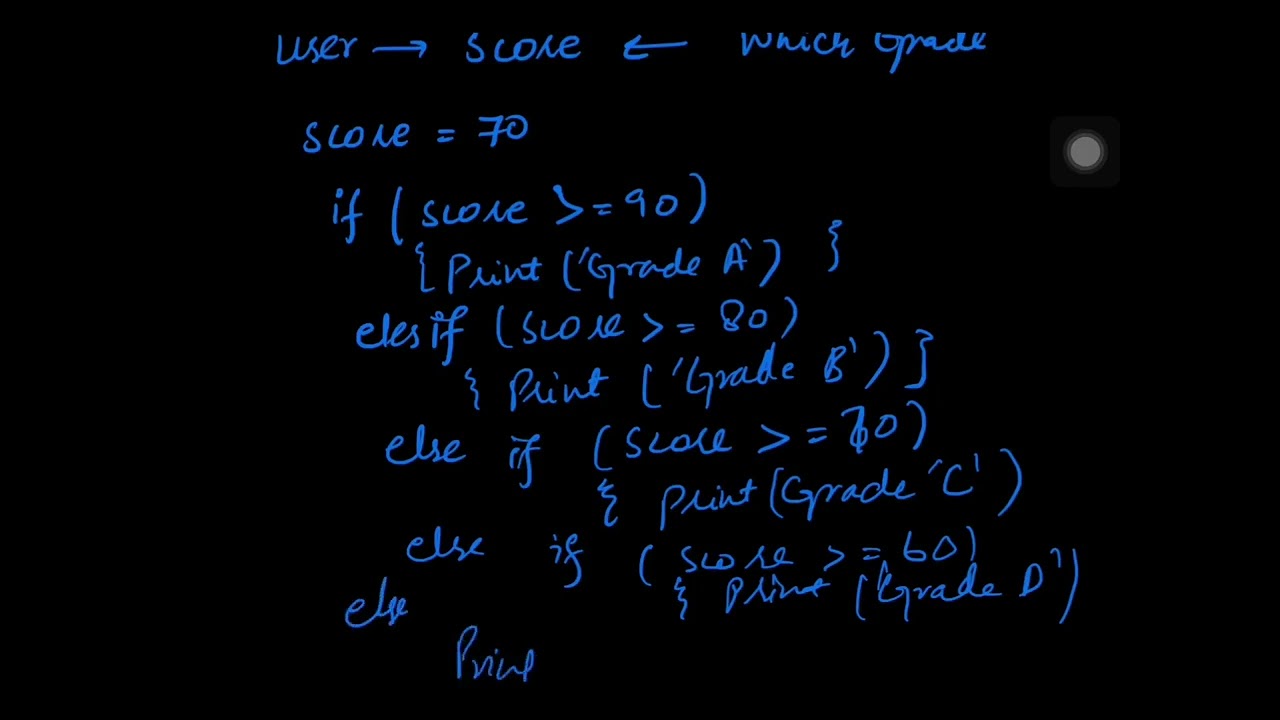 user → score ← which Grade
score = 70
if ( score >= 90 )
{ Print ('Grade A') }
elesif ( score >= 80 )
{ Print ('Grade B') }
else if ( score >= 70 )
{ Print (Grade 'C' )
else if ( score >= 60 )
{ Print ('Grade D' )
else
Print